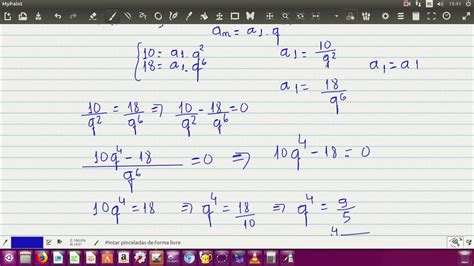 MyPaint
18:41
an = a1 . q
{ 10 = a1 . q²
18 = a1 . q⁶
a1 = 10/q²
a1 = 18/q⁶
a1 = a1
10/q² = 18/q⁶ ⇒ 10/q² - 18/q⁶ = 0
10q⁴ - 18/q⁶ = 0 ⇒ 10q⁴ - 18 = 0
10q⁴ = 18 ⇒ q⁴ = 18/10 ⇒ q⁴ = 9/5
4
Pintar pinceladas de forma livre